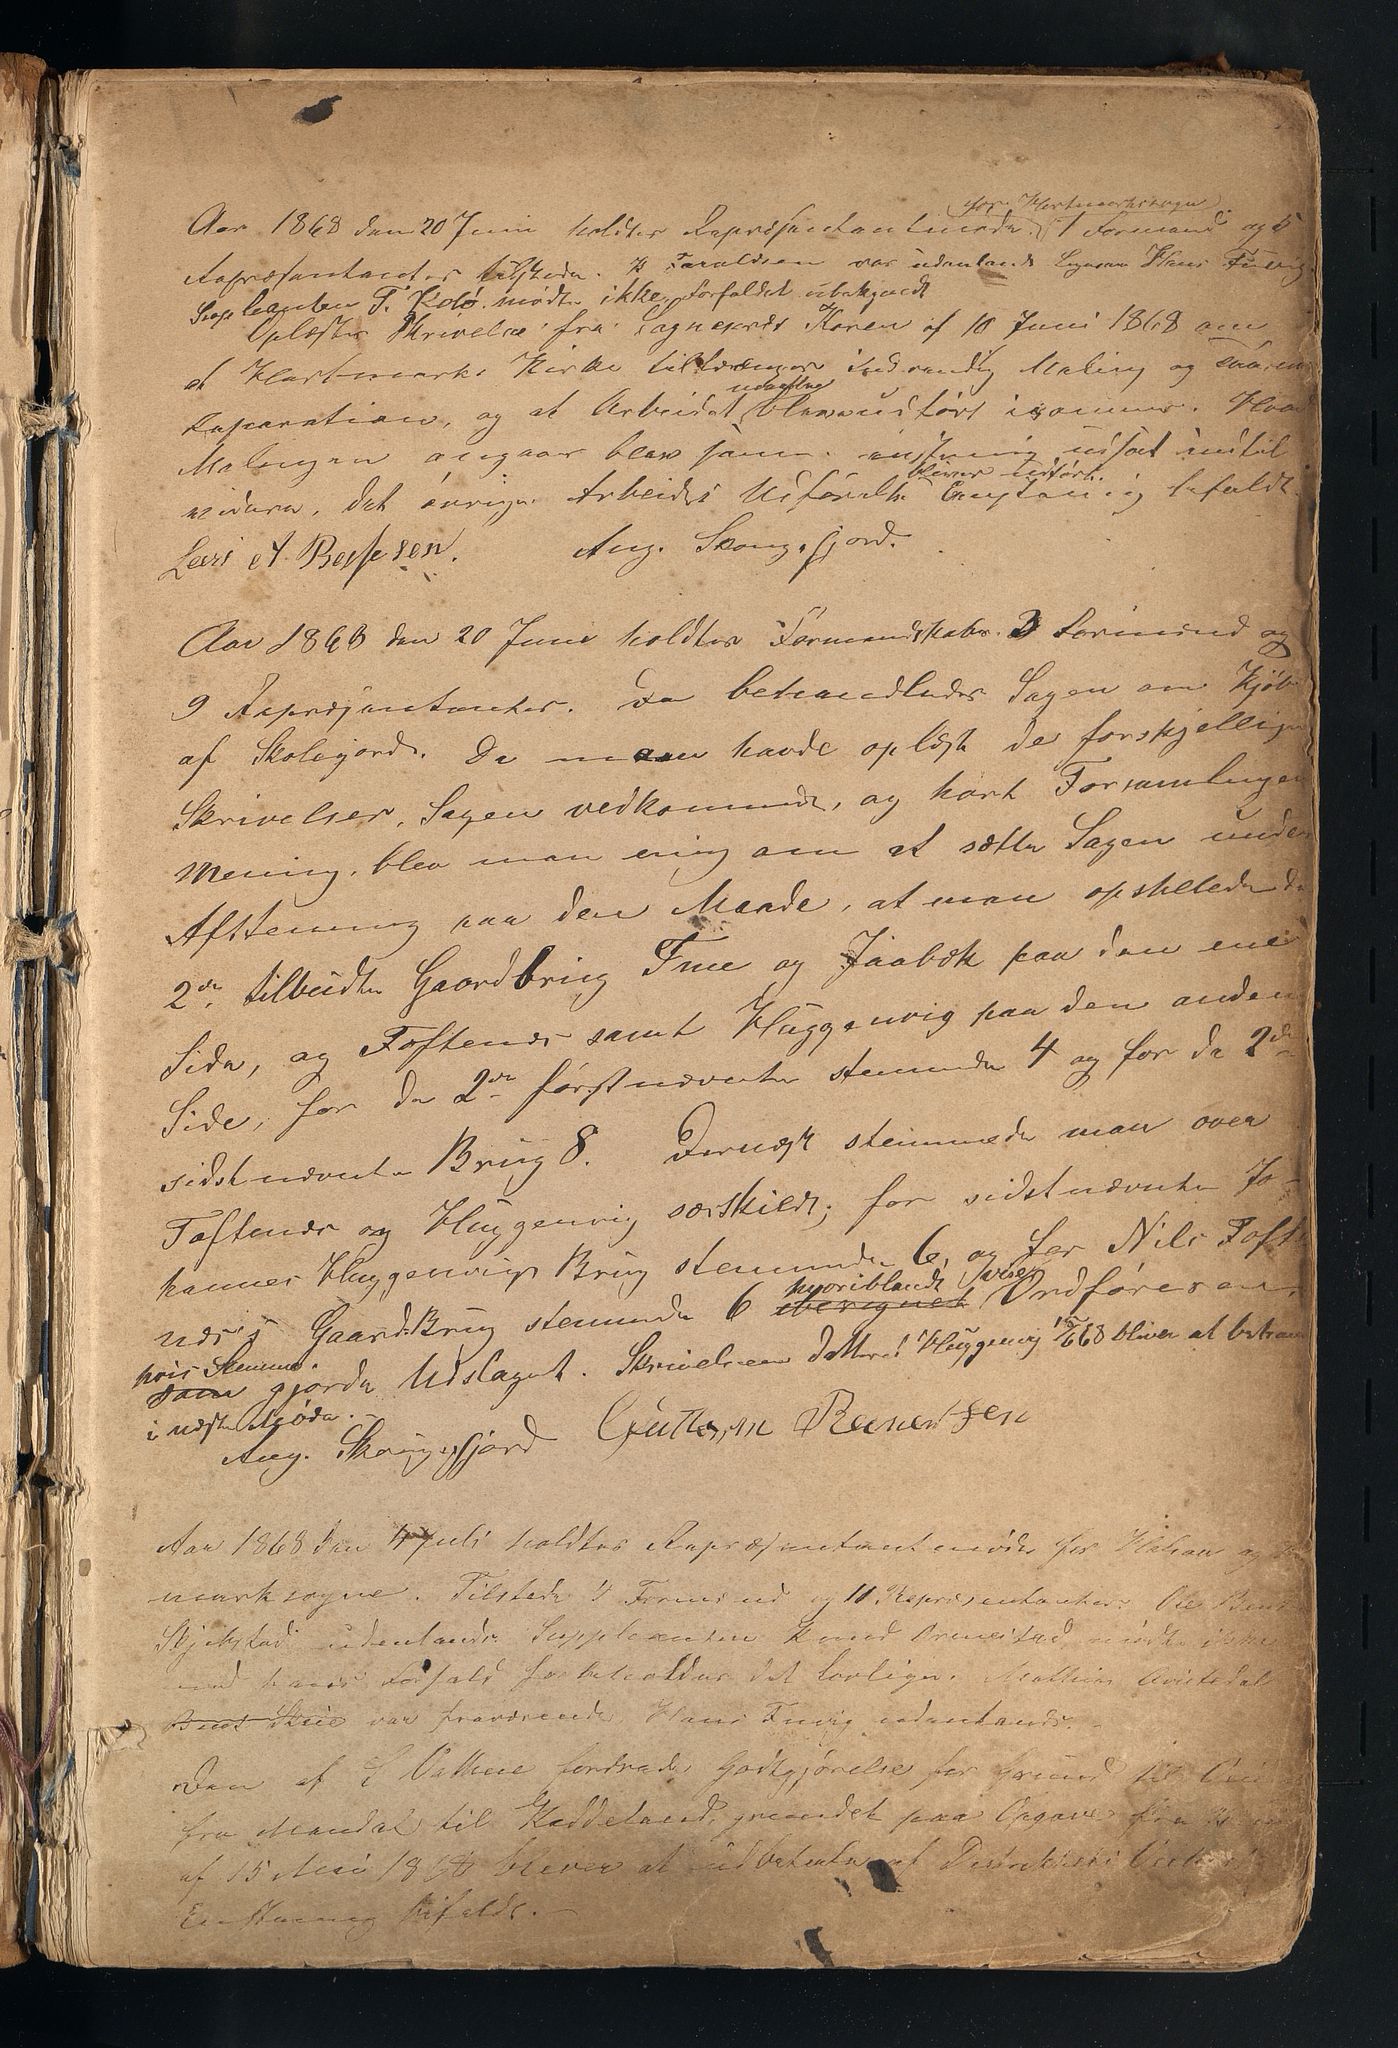 for Hartmarksogn
Aar 1868 den 20 Juni holdtes Repræsentantmøde 1 Formand og 5
Repræsentanter tilstede. K Taraldsen var udenlands ligesaa Hans Fuvig
Suplianten T. Kolø mødte ikke, forfaldet ubekjendt
Oplæstes Skrivelse fra Sognepræst Koren af 10 Juni 1868 om
at Hartmarks Kirke tiltrænger indvendig Maling og
Reparation, og at Arbeidet blev udført i sommer. Hvad
Malingen angaar blev samme enstemig udsat indtil
videre, det øvrige Arbeides Udførelse enstemig bifaldt.
bliver udført
Lars A Bessesen. Aug. Skougsfjord.
Aar 1868 den 20 Juni holdtes Formandskabs. 3 Formænd og
9 Repræsentanter. Da behandledes Sagen om Kjøb
af Skolejord. Da man havde oplæst de forskjellige
Skrivelser, Sagen vedkommende, og hørt Forsamlingens
Mening, blev man enig om at sætte Sagen under
Afstemning paa den Maade, at man opstillede de
2de tilbudte Gaardbrug Tme og Jaabæk paa den ene
Side, og Toftenes samt Huggenvig paa den anden
Side, for de 2de førstnævnte stemmede 4 og for de 2de
sidstnævnte Brug 8. Dernæst stemmede man over
Toftenes og Huggenvig særskildt; for sidstnævnte Jo-
hannes Huggenvigs Brug stemmede 6, og for Nils Toft
næs's GaardBrug stemmede 6 hvoriblandt Ordføreren,
hvis Stemme
som gjorde Udslaget. Skrivelsen datteret Huggenvig 15/6 68 bliver at behan
i næste Møde.
Aug. Skougsfjord Guttorm Reinertsen
Aar 1868 den 4 Juli holdtes Repræsentantmøde for Halsaa og
marksogne. Tilstede 4 Formænd og 11 Repræsentanter. Ole Bent
Skjebstad udenlands Supplianten Knud Ormestad mødte ikke
med hans Forfald forbeholdes det lovlige. Mathias
var fraværende Hans Fuvig udenlands.
Den af E Vatne fordrede Godtgjørelse for Grund til
fra Mandal til Kaddeland, grundet paa Opgave fra
af 15 Mai 1868 bliver at udbetale af Distriktets
Enstemig bifaldt.